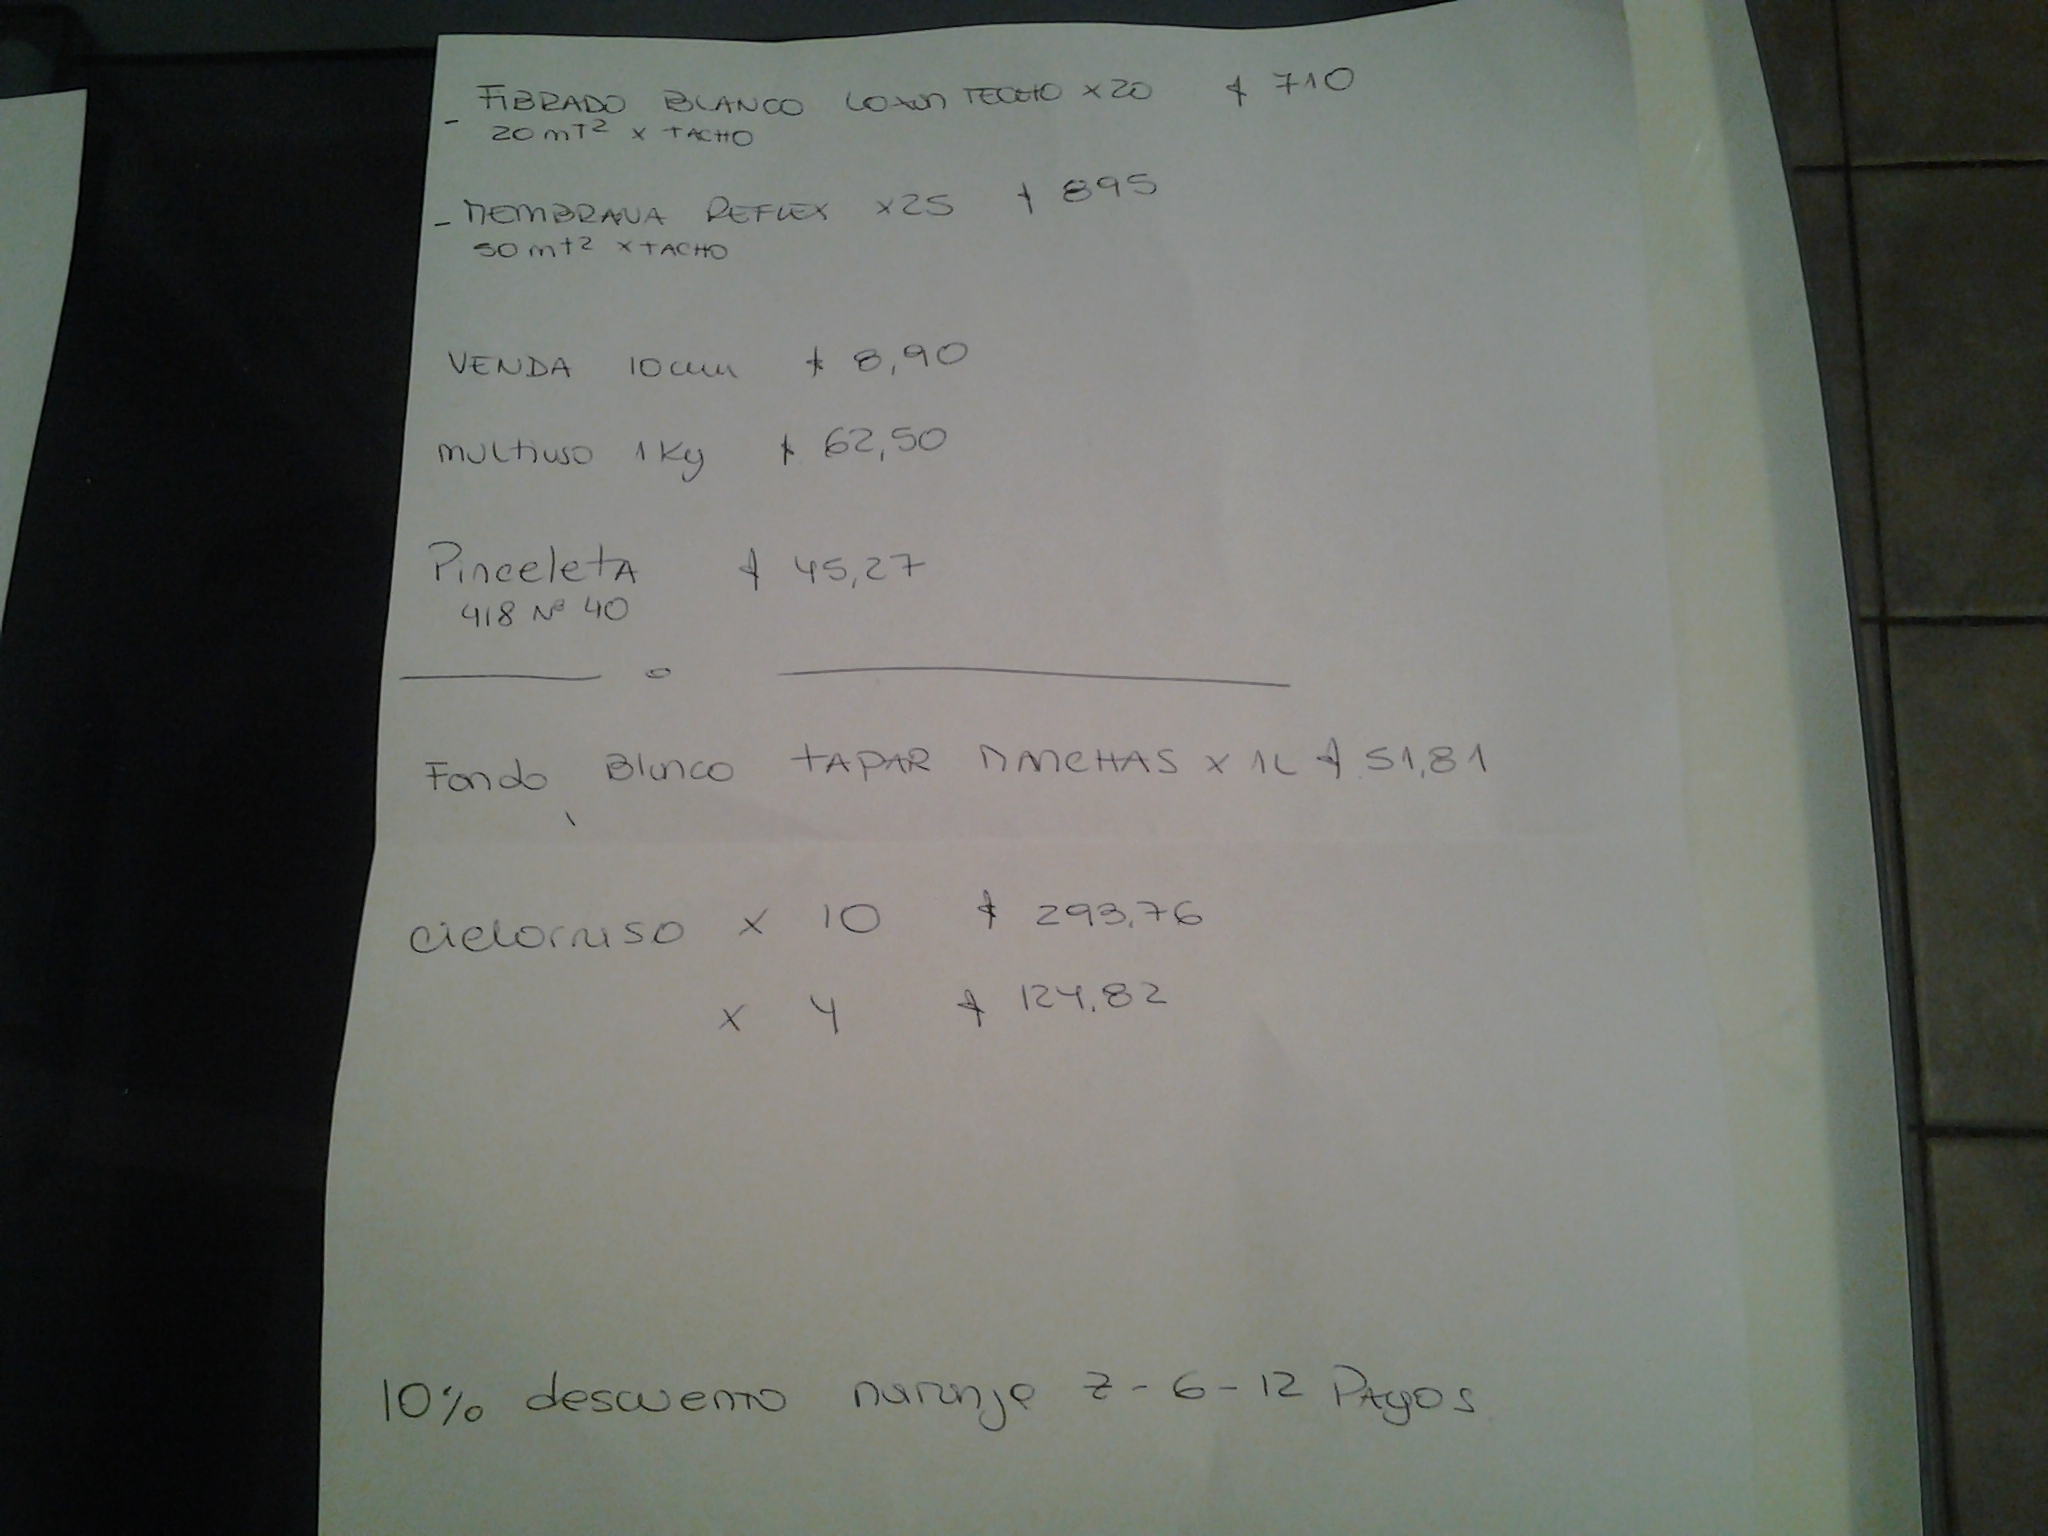 - FIBRADO BLANCO LOXON TECHO x20 $ 710
20 mt² x TACHO
- MEMBRANA REFLEX x25 $ 895
50 mt² x TACHO
VENDA 10cm $ 8,90
multiuso 1Kg $ 62,50
PinceletA $ 45,27
418 Nº 40
Fondo Blanco tAPAR MANCHAS x 1L $ 51,81
cielorraso x 10 $ 293,76
x 4 $ 124,82
10% descuento naranja z - 6 - 12 PAgos